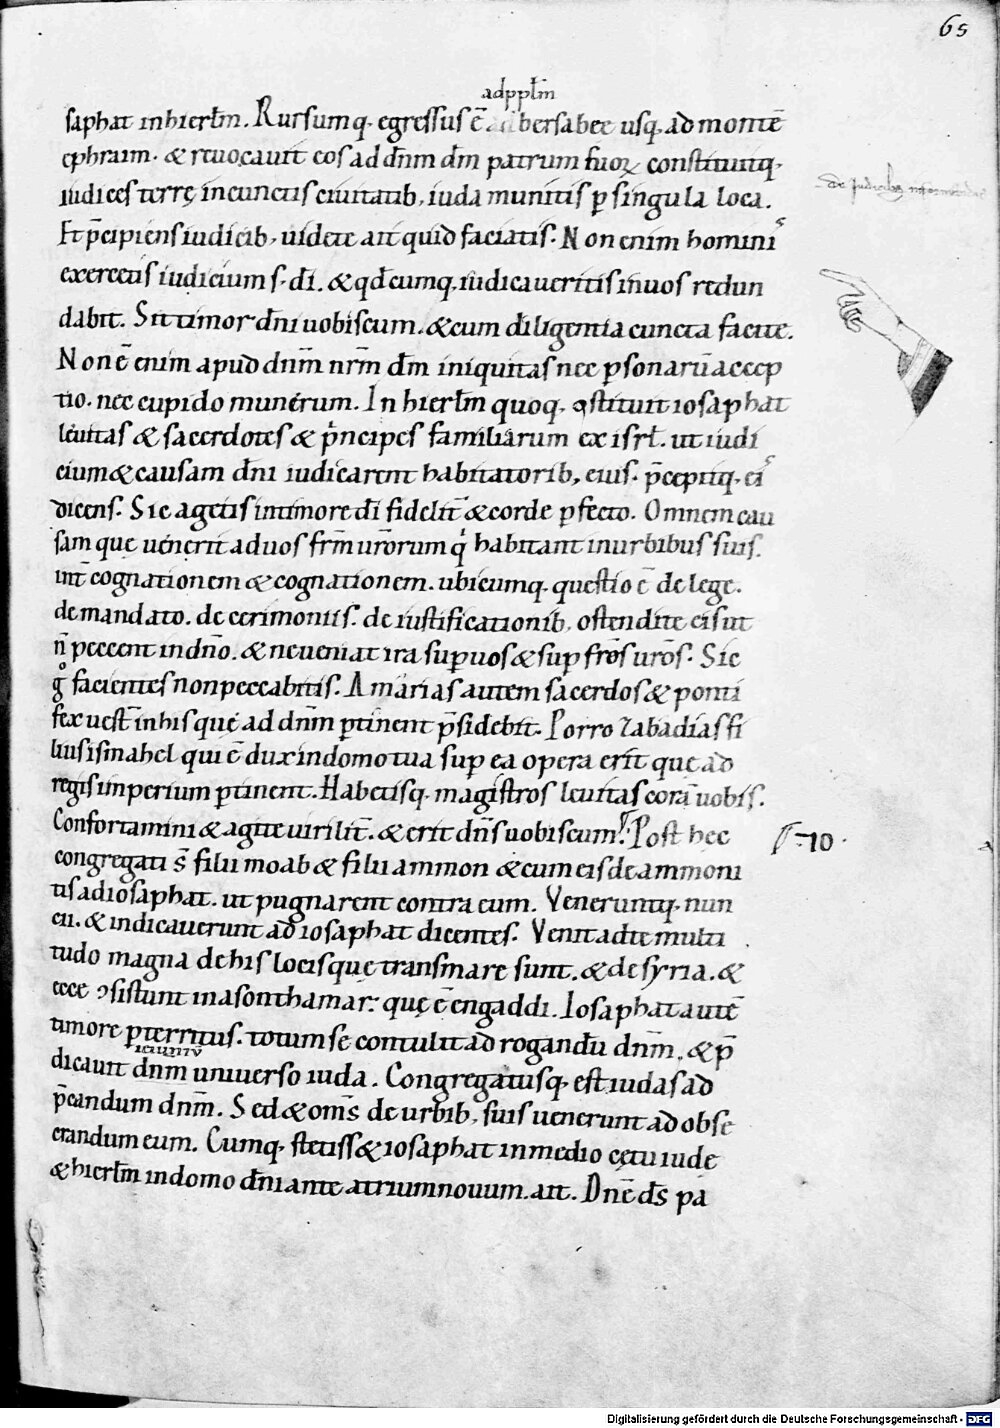 65
ad pplm̄
saphat in hierl̄m. Rursumq. egressus ē ad bersabee usq. ad montē
ephraim. & reuocauit eos ad dn̄m dm̄ patrum suoꝝ constituitq.
iudices terrę in cunctis ciuitatib. iuda munitis ꝑ singula loca.
Et p̄cipiens iudicib. uidete ait quid faciatis. Non enim homini's
exercetis iudicium s. dī. & qd̄cumq. iudicaueritis in uos redun
dabit. Sit timor dn̄i uobiscum. & cum diligentia cuncta facite.
Non ē enim apud dn̄m nr̄m dm̄ iniquitas nec ꝑsonarū accep
tio. nec cupido munerum. In hierl̄m quoq. ꝯstituit iosaphat
leuitas & sacerdotes & pͥncipes familiarum ex isrl̄. ut iudi
cium & causam dn̄i iudicarent habitatorib, eius. p̄cepitq. ei's
dicens. Sic agetis in timore dī fidelit̄ & corde ꝑfecto. Omnem cau
sam quę uenerit ad uos fr̄m ur̄orum qͥ habitant in urbibus suis.
int̄ cognationem & cognationem. ubicumq. questio ē de lege.
de mandato. de cerimoniis. de iustificationib. ostendite eis ut
n̄ peccent in dn̄o. & ne ueniat ira suꝑ uos & suꝑ fr̄es ur̄os. Sic
gͦ facientes non peccabitis. Amarias autem sacerdos & ponti
fex uest̄ in his quę ad dn̄m ꝑtinent p̄sidebit. Porro zabadias fi
lius ismahel qui ē dux in domo tua suꝑ ea opera erit quę ad
regis imperium ꝑtinent. Habetisq. magistros leuitas corā uobis.
Confortamini & agite uirilit̄. & erit dn̄s uobiscum. Post hec
10
congregati s̄ filii moab & filii ammon & cum eis de ammoni
tis ad iosaphat. ut pugnarent contra eum. Veneruntq. nun
cii. & indicauerunt ad iosaphat dicentes. Venit ad te multi
tudo magna de his locis quę trans mare sunt. & de syria. &
ecce ꝯsistunt in asonthamar. quę ē engaddi. Iosaphat autē
timore ꝑterritus. totum se contulit ad rogandū dn̄m. & p̄
ieiuniū
dicauit dn̄m uniuerso iuda. Congregatusq. est iudas ad
p̄candum dn̄m. Sed & om̄s de urbib. suis uenerunt ad obse
crandum eum. Cumq. stetiss& iosaphat in medio cętu iudę
& hierl̄m in domo dn̄i ante atrium nouum. ait. Dn̄e ds̄ pa
Digitalisierung gefördert durch die Deutsche Forschungsgemeinschaft - DFG